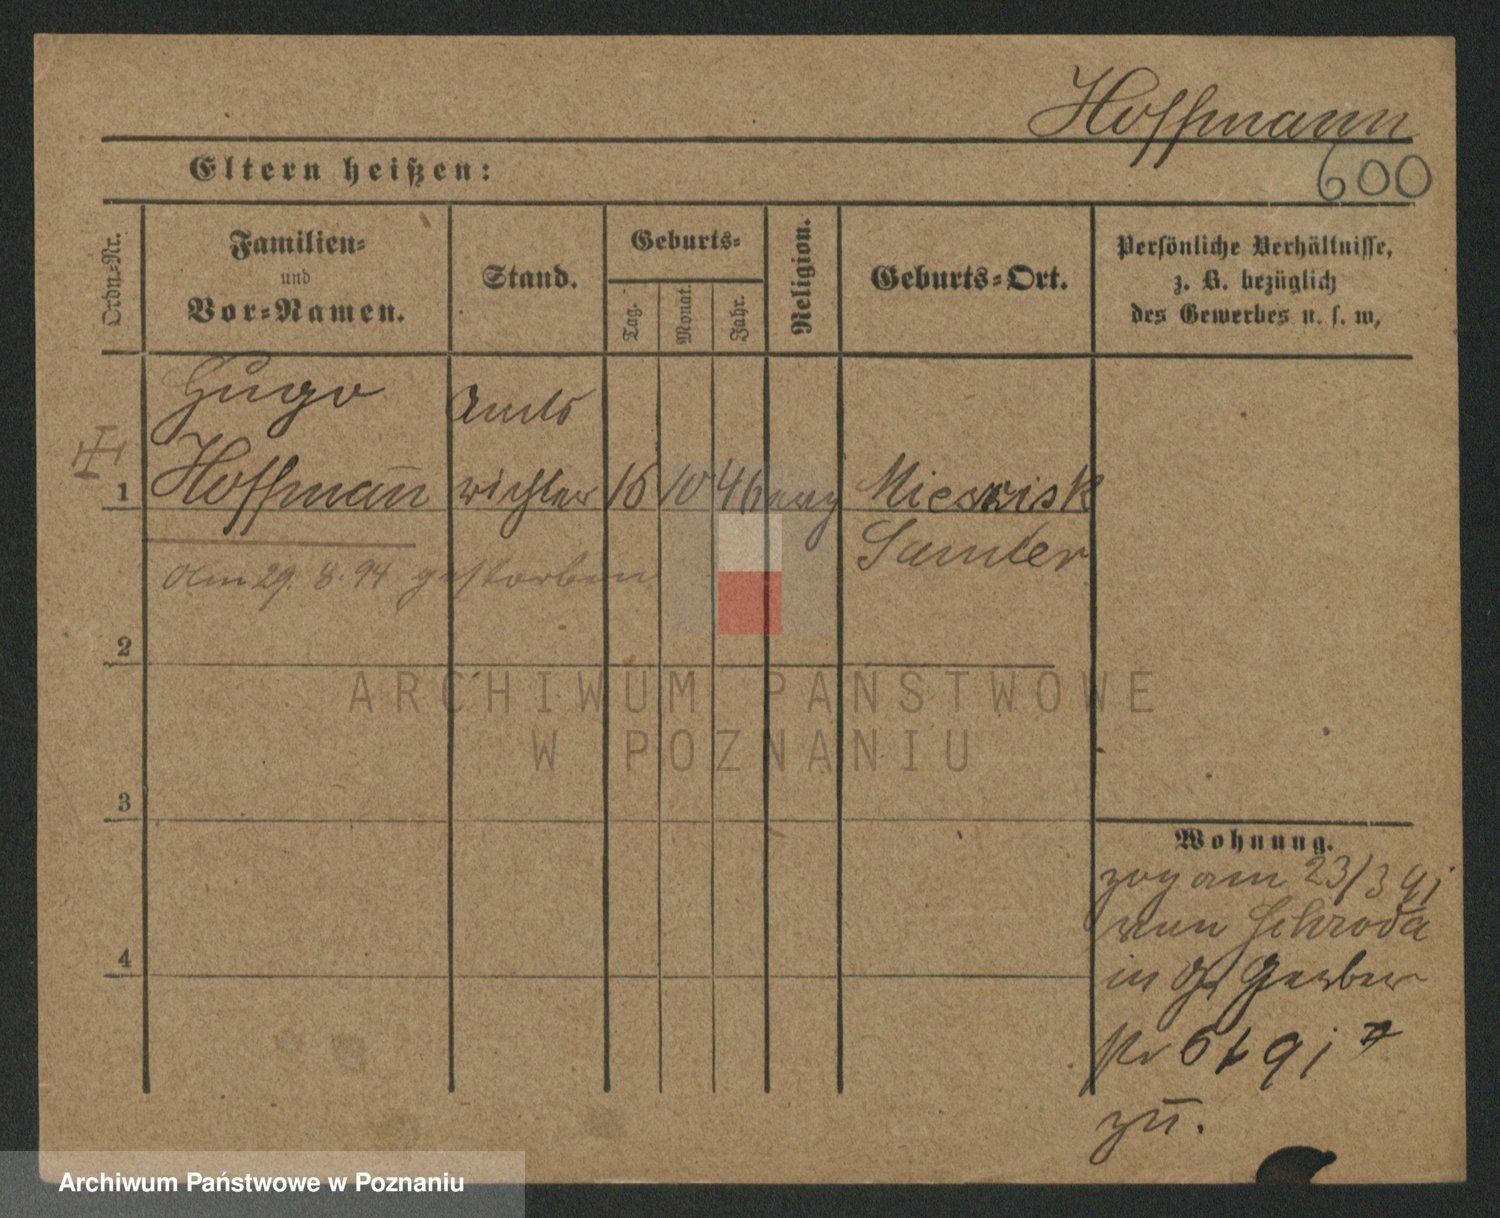 Hoffmann
600
Eltern heißen:
Ordn=Nr.
Familien=
und
Vor=Namen.
Stand.
Geburts=
Tag.
Monat.
Jahr.
Religion.
Geburts=Ort.
Persönliche Verhältnisse,
z. B. bezüglich
des Gewerbes u. s. w,
Hugo
Hoffmann
Amts
richter
10
46
evg
Samter
1
Am 29. 8. 94 gestorben
2
3
4
Wohnung.
zog am 23/3 91
von Schroda
in Gr Gerber
str
zu.
ARCHIWUM PAŃSTWOWE
W POZNANIU
Archiwum Państwowe w Poznaniu